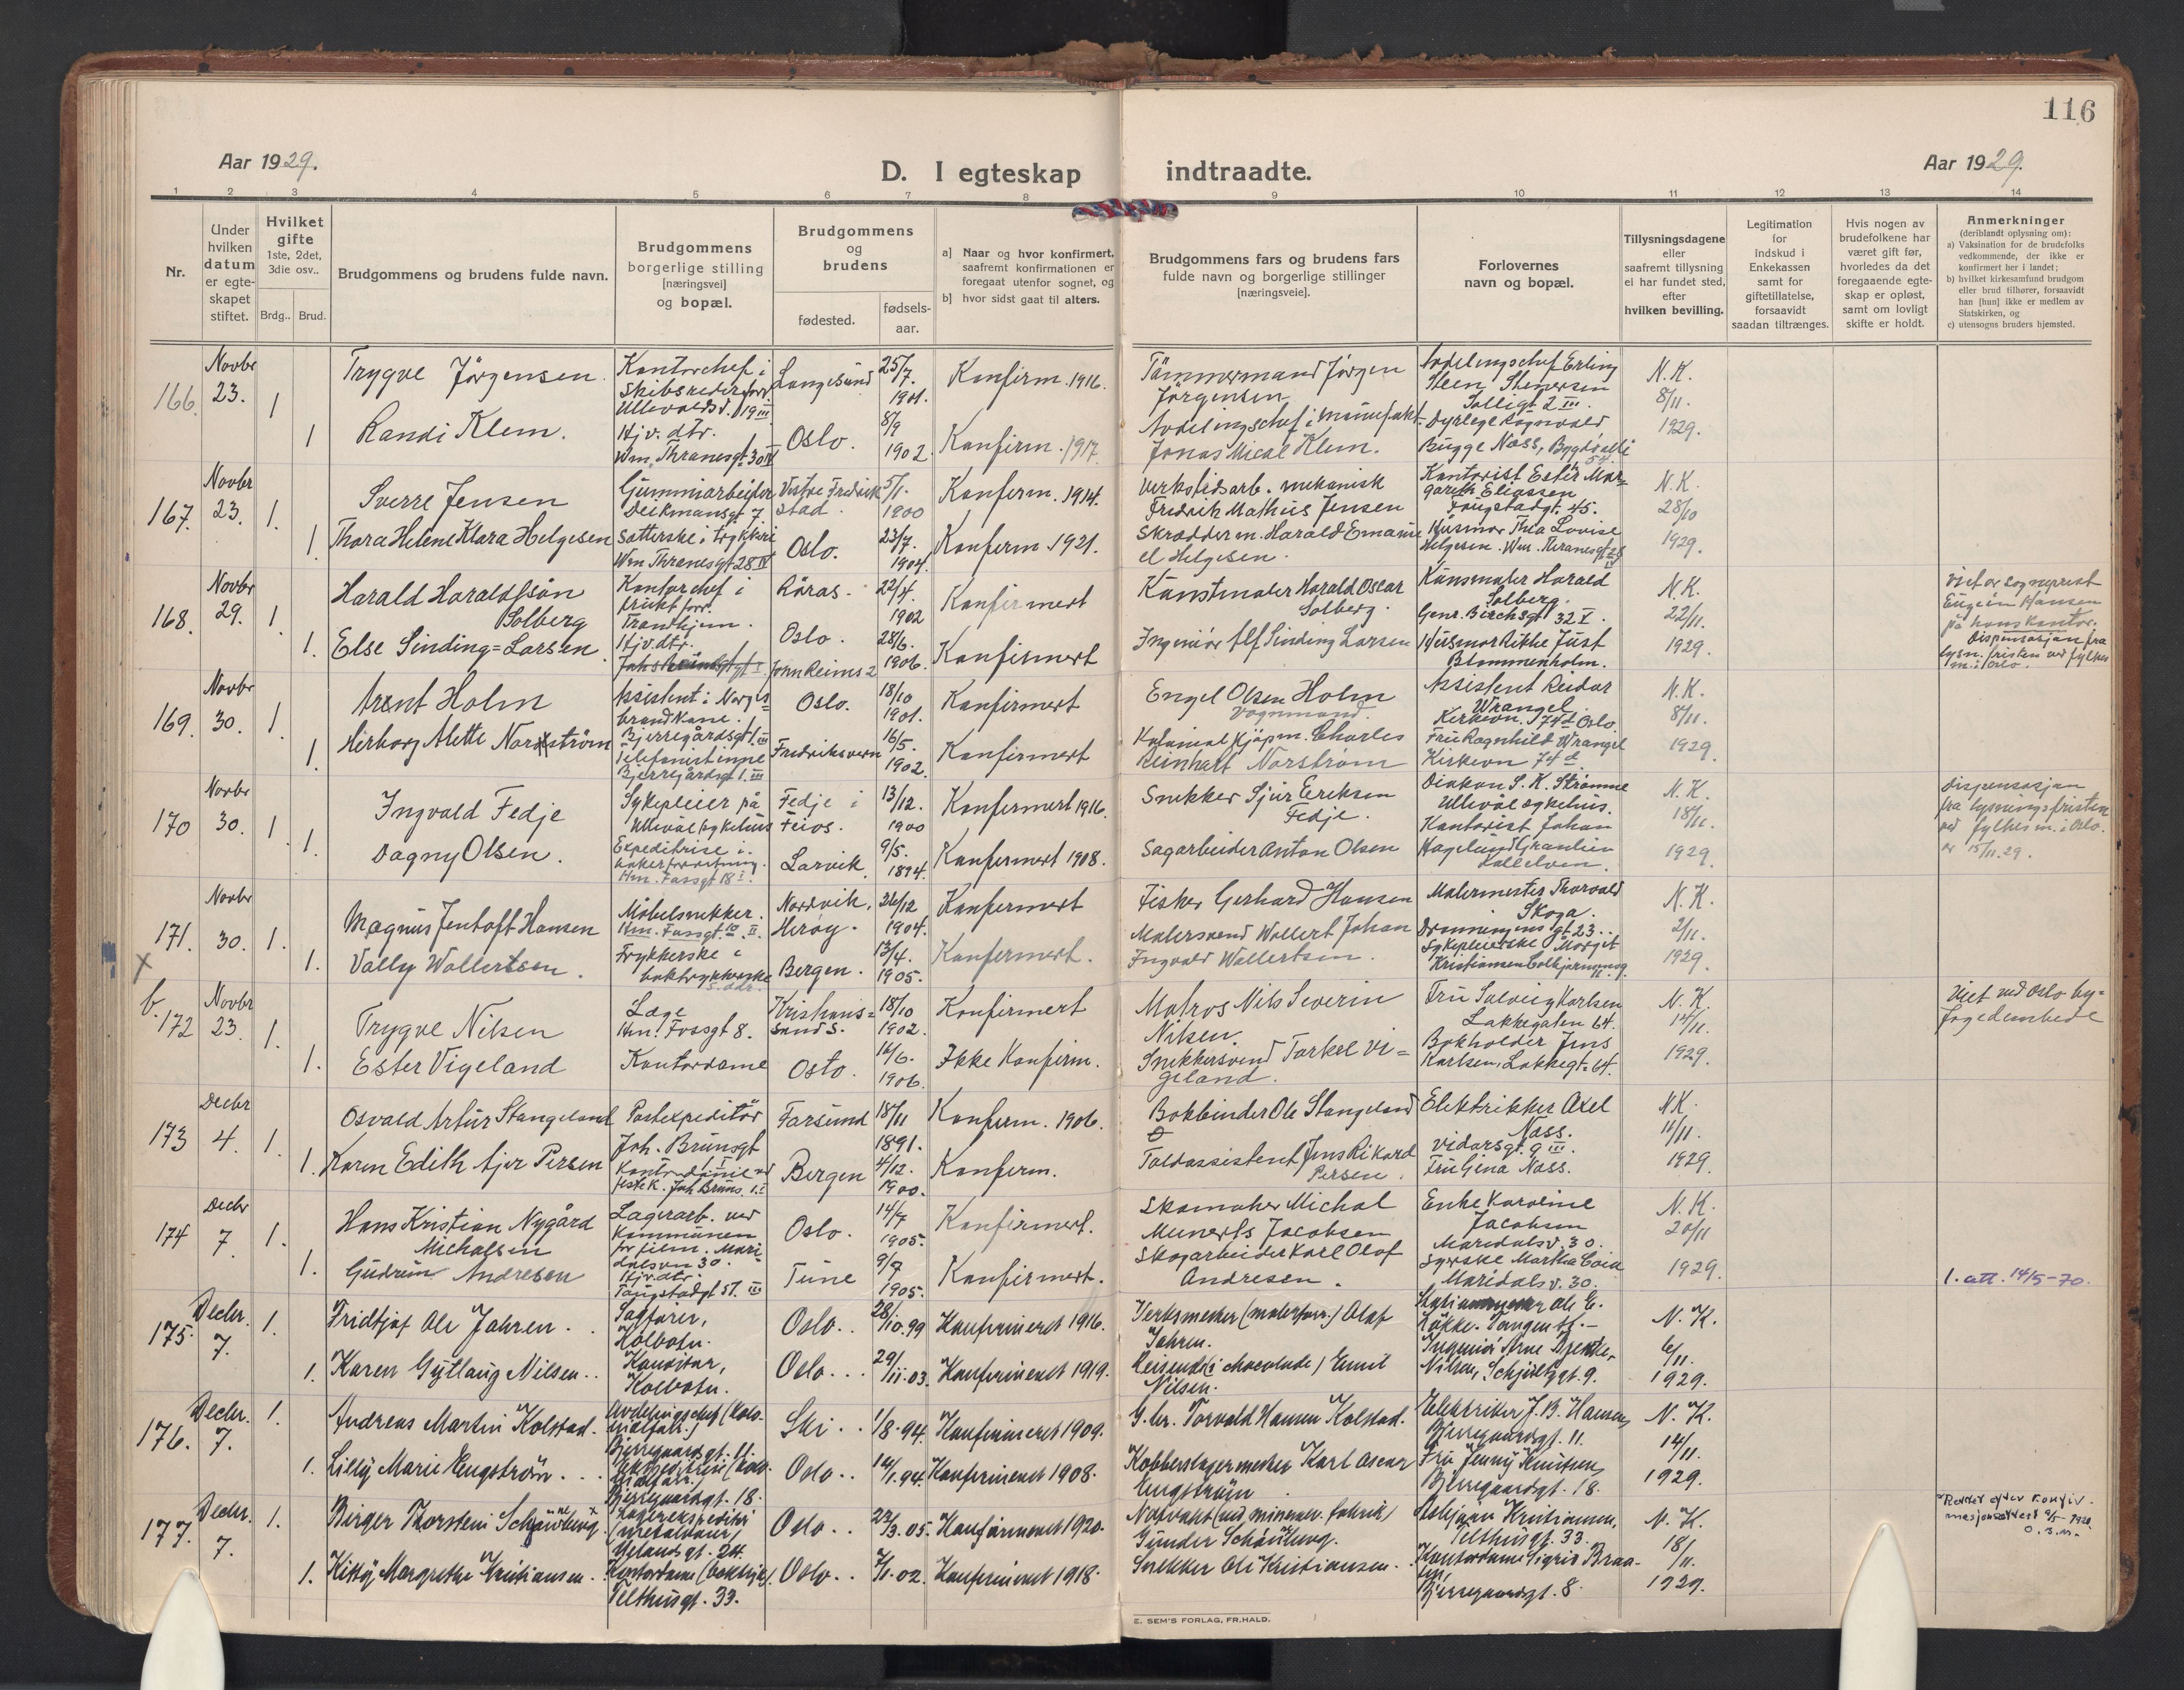 116
Aar 1929.
D. I egteskap indtraadte.
Aar 1929.
1 2 3 4 5 6 7 8 9 10 11 12 13 14
Nr.
Under hvilken datum er egte-skapet stiftet.
Hvilket gifte 1ste, 2det, 3die osv..
Brdg.. Brud.
Brudgommens og brudens fulde navn.
Brudgommens borgerlige stilling [næringsvei] og bopæl.
Brudgommens og brudens
fødested.
fødsels-aar.
a] Naar og hvor konfirmert, saafremt konfirmationen er foregaat utenfor sognet, og
b] hvor sidst gaat til alters.
Brudgommens fars og brudens fars fulde navn og borgerlige stillinger [næringsveie].
Forlovernes navn og bopæl.
Tillysningsdagene eller saafremt tillysning ei har fundet sted, efter hvilken bevilling.
Legitimation for Indskud i Enkekassen samt for giftetillatelse, forsaavidt saadan tiltrænges.
Hvis nogen av brudefolkene har været gift før, hvorledes da det foregaaende egte-skap er opløst, samt om lovligt skifte er holdt.
Anmerkninger
(deriblandt oplysning om):
a) Vaksination for de brudefolks vedkommende, der ikke er konfirmert her i landet;
b) hvilket kirkesamfund brudgom eller brud tilhører, forsaavidt han [hun] ikke er medlem av Statskirken, og
c) utensogns bruders hjemsted.
166. Novbr 23. 1
Trygve Jörgensen.
Kontorchef i Skibsrederforr. Ullevoldsv. 19 III
Langesund
25/7. 1901.
Konfirm. 1916.
Tömmermand Jörgen Jörgensen
Avdelingschef Erling Steen Stenersen
Solligt 2 III.
N.K. 8/11. 1929.
1 Randi Klem.
Hjv. dtr. Wm. Thranesgt 30 IV
Oslo.
8/9 1902
Konfirm. 1917.
Avdelingschef i manufakt. Jonas Mical Klem.
Dyrlege Ragnvald Bugge Næss, Bygdö allé 54.
167. Novbr 23. 1.
Sverre Jensen
Gummiarbeider Deikmansgt 7
Vestre Fredrikstad.
5/1. 1900
Konferm. 1914.
Verkstedsarb. mekanisk Fredrik Mathius Jensen
Kontorist Ester Margareth Eliassen
Tougstadgt. 45.
N.K. 28/10 1929.
1 Thora Helene Klara Helgesen
Setterske i trykkeri Wm Thranesgt 28 IV
Oslo.
23/7. 1904.
Konferm 1921.
Skræddrm. Harald Emanuel Helgesen.
Husmor Thea Lovise Helgesen. Wm. Thranesgt 28
168. Novbr 29. 1.
Harald Haraldssön Solberg
Kontorchef i frukt forr. Trondhjem.
Röras.
22/4. 1902
Konfirmert
Kunstmaler Harald Oscar Solberg.
Kunsmaler Harald Solberg.
Genr. Birchsgt 32 V.
N.K. 22/11. 1929.
1. Else Sinding=Larsen
Hjv. dtr.
Oslo.
28/6. 1906.
Konfirmert
Ingeniör Alf Sinding Larsen
Husmor Rikke Just Blommenholm.
Viet av sogneprest Eugen Hansen på hans kontor. Dispensasjon fra lysn. fristen ved fylkesm. i Oslo.
169. Novbr 30. 1
Arent Holm
Assistent i Norges brandkasse. Bjerregårdsgt 1. III
Oslo.
18/10 1901.
Konfirmert
Engel Olsen Holm
Vognmand.
Assistent Reidar Wrangel.
Kirkevn. 74 d Oslo.
N.K. 8/11. 1929
1 Herborg Alette Norström
Telefonistinne Bjerregårdsgt 1. III
Fredriksvern
16/5. 1902.
Konfirmert
Kolonial kjøpm. Charles Reinhalt Norström
Fru Ragnhild Wrangel Kirkevn 74 d.
170 Novbr 30. 1
Ingvald Fedje
Sykepleier på Ullevål sykehus
Fedje i Feios.
13/12. 1900
Konfermert 1916.
Snekker Sjur Eriksen Fedje.
Diakon S. K. Strømme Ullevål sykehus.
N.K. 18/11. 1929
1. Dagny Olsen.
Expeditrise i bakerforretning. Hm. Fossgt 18 I.
Larvik
9/5. 1894.
Konfermert 1908.
Sagarbeider Anton Olsen
Kontorist Johan Hagelund
Dispensasjon fra lysnings fristen ved fylkesm. i Oslo. av 15/11.29.
171. Novbr 30. 1.
Magnus Jentoft Hansen
Möbelsnekker. Hm. Fossgt. 10 II.
Nordvik, Heröy.
26/12 1904.
Konfermert
Fisker Gerhard Hansen
Malermester Thorvald Skoga.
Dronningens gt 23.
N.K. 2/11. 1929
1. Vally Wollertsen.
Trykkerske i boktrykkeri
Bergen.
13/4. 1905.
Konfermert.
Malersvend Wollert Johan Ingvald Wollertsen.
Sykepleierske Margit Kristiansen
b. 172 Novbr 23 1.
Trygve Nilsen
Læge Hm. Fossgt 8.
Kristians=sand S.
18/10 1902.
Konfirmert
Matros Nils Severin Nilsen.
Fru Solveig Karlsen Lakkegaten 64.
N.K. 14/11. 1929.
1. Ester Vigeland
Kontordame
Oslo.
16/6. 1906.
Ikke Konfirm.
Snekkersvend Torkel Vi=geland.
Bokholder Jens Karlsen, Lakkegt. 64.
Viet ved Oslo by=fogedembede
173 Decbr 4. 1.
Osvald Artur Stangeland
Postexpeditör Joh. Brunsgt 1 I
Farsund
18/11 1891.
Konferm. 1906.
Bokbinder Ole Stangeland
Elektrikker Axel Næss.
Vidarsgt. 9 III.
N.K. 11/11. 1929
1. Karen Edith Ajer Persen
Bergen
4/12. 1900.
Konferm.
Toldassistent Jens Rikard Persen.
Fru Gina Næss.
174 Decbr 7. 1.
Hans Kristian Nygård Michalsen
Lagerarb. ved Kommunen for film. Mari-dalsvn 30.
Oslo.
14/7 1905.
Konfirmert.
Skomaker Michal Meinerts Jacobsen
Enke Karoline Jacobsen
Maridalsv. 30.
N.K. 20/11 1929
1. Gudrun Andresen
Hjv. dtr. Tougstadgt 51. III
Tune
9/7 1905.
Konfirmert.
Skogarbeider Karl Olof Andresen.
Syerske Martha
Maridalsv. 30.
1. att. 14/5-70.
175. Decbr. 7. 1.
Fridtjof Ole Jahren.
Kolbotn.
Oslo.
28/10.99
Konfirmeret 1916.
Verksmester (malerforr.) Olaf Jahren.
N.K. 6/11. 1929.
1. Karen Gytlaug Nilsen.
Kontorist, Kolbotn.
Oslo.
29/11.03.
Konfirmeret 1919.
Reisende (i chocolade) Emil Nilsen.
Ingeniör Arne Nilsen, Schjøllsgt. 9.
176. Decbr. 7. 1.
Andreas Martin Kolstad.
Avdelingschef (kolo-nialforr.) Bjerregaardsgt. 11.
Ski.
1/8.94.
Konfirmeret 1909.
G.br. Torvald Hansen Kolstad.
Elektriker J. B. Hansen, Bjerregaardsgt. 11.
N.K. 14/11. 1929.
1. Lilly Marie Engström.
Bjerregaardsgt. 18.
Oslo.
14/1.94
Konfirmeret 1908.
Kobberslagermester Karl Oscar Engström
Fru Jenny Knutsen, Bjerregaardsgt. 18.
177. Decbr. 7. 1.
Birger Thorstein
Lagerekspeditör (metalvarer) Uelandsgt. 24.
Oslo.
22/3.05.
Konfirmeret 1920.
Gunder
Asbjørn Kristiansen, Telthusgt. 33.
N.K. 18/11. 1929.
1. Kitty Margrethe Kristiansen.
Kontordame (boktryk). Telthusgt. 33.
Oslo.
7/1.02.
Konfirmeret 1918.
Snekker Ole Kristiansen.
Kontordame Sigrid Braa-ten, Bjerregaardsgt. 8
E. SEM'S FORLAG, FR.HALD.